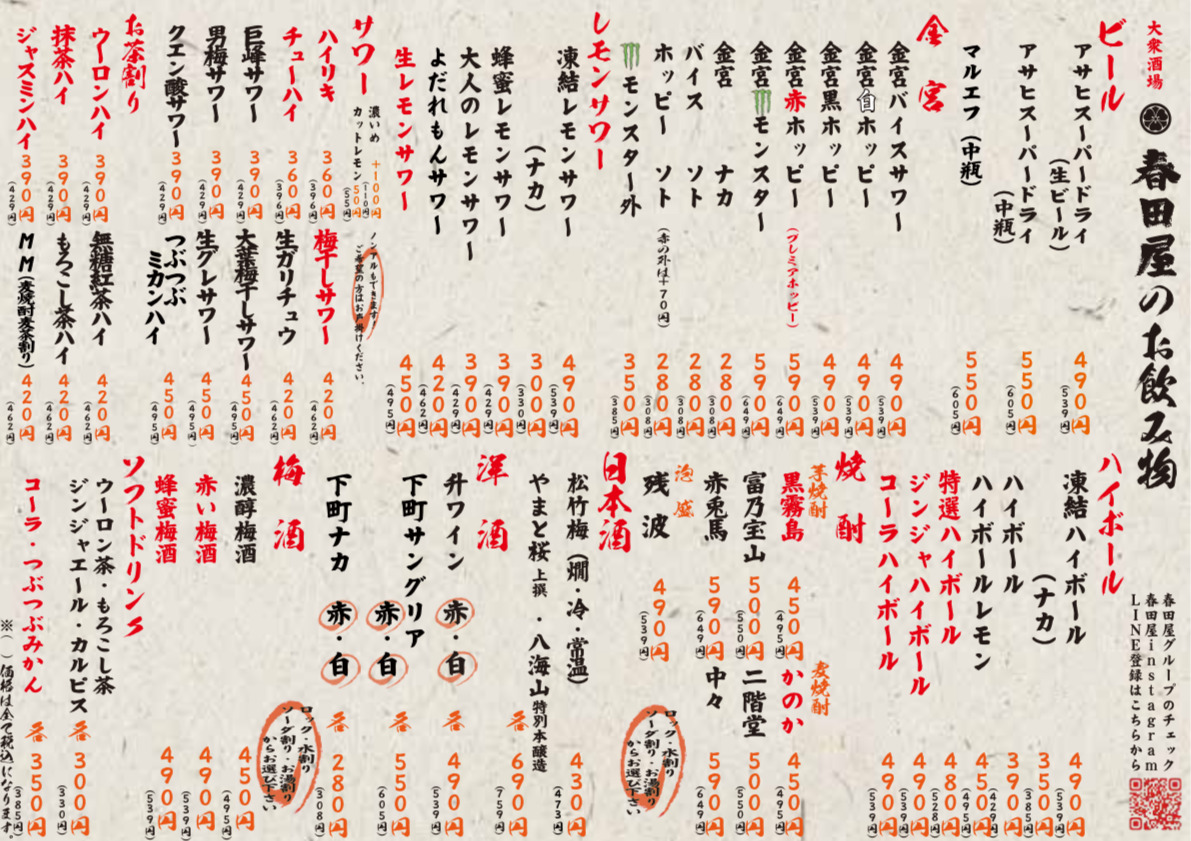 大衆酒場
春田屋のお飲み物
春田屋グループのチェック
春田屋instagram
LINE登録はこちらから
ビール
アサヒスーパードライ
(生ビール)
490円
(539円)
アサヒスーパードライ
(中瓶)
550円
(605円)
マルエフ(中瓶)
550円
(605円)
金宮
金宮バイスサワー
490円
(539円)
金宮白ホッピー
490円
(539円)
金宮黒ホッピー
490円
(539円)
金宮赤ホッピー
(プレミアホッピー)
590円
(649円)
金宮モンスター
590円
(649円)
金宮 ナカ
280円
(308円)
バイス ソト
280円
(308円)
ホッピー ソト
(赤の外は+70円)
280円
(308円)
モンスター外
350円
(385円)
レモンサワー
凍結レモンサワー
490円
(539円)
(ナカ)
300円
(330円)
蜂蜜レモンサワー
390円
(429円)
大人のレモンサワー
390円
(429円)
よだれもんサワー
420円
(462円)
生レモンサワー
450円
(495円)
サワー
濃いめ +100円
(110円)
カットレモン 50円
(55円)
ノンアルもできます!
ご希望の方はお声掛けください。
ハイリキ
360円
(396円)
チューハイ
360円
(396円)
巨峰サワー
390円
(429円)
男梅サワー
390円
(429円)
クエン酸サワー
390円
(429円)
梅干しサワー
420円
(462円)
生ガリチュウ
420円
(462円)
大葉梅干しサワー
450円
(495円)
生グレサワー
450円
(495円)
つぶつぶ
ミカンハイ
450円
(495円)
お茶割り
ウーロンハイ
390円
(429円)
抹茶ハイ
390円
(429円)
ジャスミンハイ
390円
(429円)
無糖紅茶ハイ
420円
(462円)
もろこし茶ハイ
420円
(462円)
MM(麦焼酎麦茶割り)
420円
(462円)
ハイボール
凍結ハイボール
490円
(539円)
(ナカ)
350円
(385円)
ハイボール
390円
(429円)
ハイボールレモン
450円
(495円)
特選ハイボール
480円
(528円)
ジンジャハイボール
490円
(539円)
コーラハイボール
490円
(539円)
焼酎
芋焼酎
黒霧島
450円
(495円)
富乃宝山
500円
(550円)
赤兎馬
590円
(649円)
麦焼酎
かのか
450円
(495円)
二階堂
500円
(550円)
中々
590円
(649円)
泡盛
残波
490円
(539円)
ロック・水割り
ソーダ割り・お湯割り
からお選び下さい
日本酒
松竹梅(燗・冷・常温)
430円
(473円)
やまと桜 上撰・八海山 特別本醸造
各690円
(759円)
洋酒
升ワイン 赤・白
各490円
(539円)
下町サングリア
赤・白
各550円
(605円)
下町ナカ 赤・白
各280円
(308円)
梅酒
ロック・水割り
ソーダ割り・お湯割り
からお選び下さい
濃醇梅酒
450円
(495円)
赤い梅酒
490円
(539円)
蜂蜜梅酒
490円
(539円)
ソフトドリンク
ウーロン茶・もろこし茶
ジンジャエール・カルピス
各300円
(330円)
コーラ・つぶつぶみかん
各350円
(385円)
※( )価格は全て税込になります。